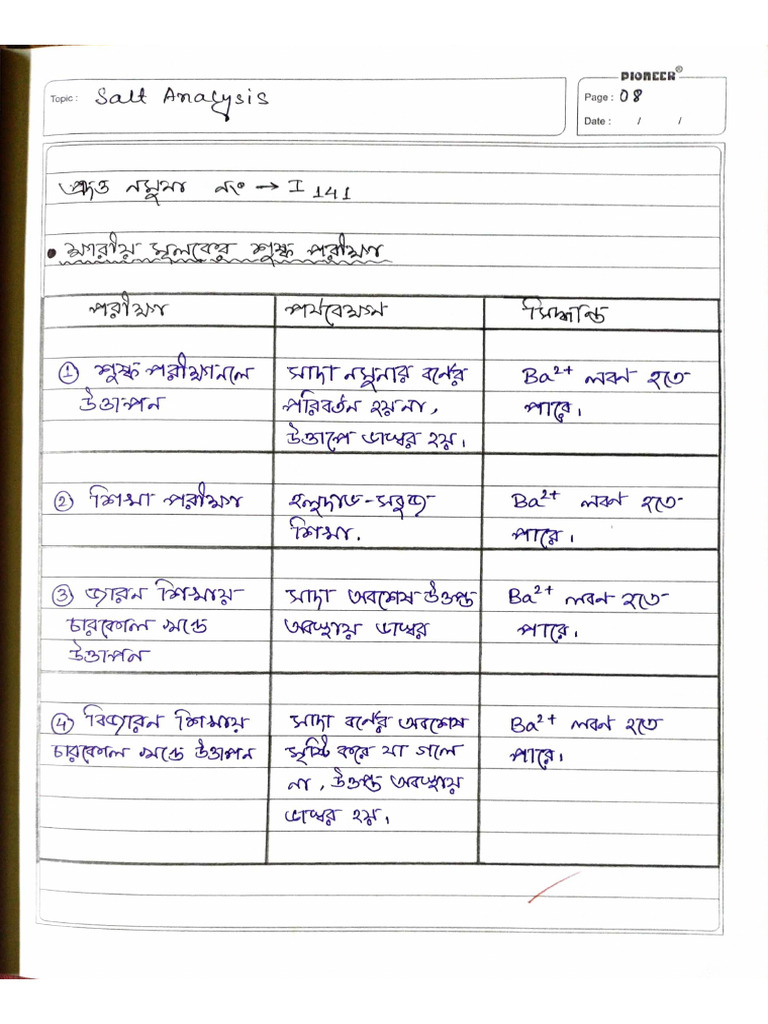 PIONEER®
Topic : Salt Analysis
Page : 08
Date : / /
প্রদত্ত নমুনা নং → I 141
• ক্ষারীয় মূলকের শুষ্ক পরীক্ষা
পরীক্ষা পর্যবেক্ষণ সিদ্ধান্ত
① শুষ্ক পরীক্ষানলে সাদা নমুনার বর্ণের Ba²⁺ লবণ হতে
উত্তাপন পরিবর্তন হয়না, পারে।
উত্তাপে ভাস্বর হয়।
② শিখা পরীক্ষা হলুদাভ-সবুজ Ba²⁺ লবণ হতে
শিখা. পারে।
③ জারন শিখায় সাদা অবশেষ উত্তপ্ত Ba²⁺ লবন হতে
চারকোল খন্ডে অবস্থায় ভাস্বর পারে।
উত্তাপন
④ বিজারন শিখায় সাদা বর্ণের অবশেষ Ba²⁺ লবণ হতে
চারকোল খন্ডে উত্তাপন সৃষ্টি করে যা গলে পারে।
না, উত্তপ্ত অবস্থায়
ভাস্বর হয়।